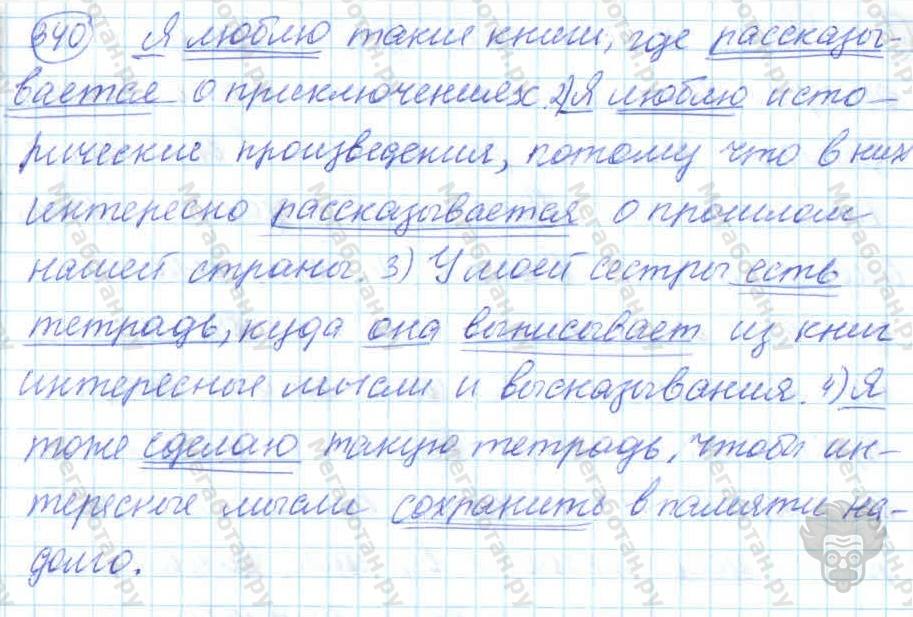 340 Я люблю такие книги, где рассказы-
вается о приключениях. 2) Я люблю исто-
рические произведения, потому что в них
интересно рассказывается о прошлом
нашей страны. 3) У моей сестры есть
тетрадь, куда она выписывает из книг
интересные мысли и высказывания. 4) Я
тоже сделаю такую тетрадь, чтобы ин-
тересные мысли сохранить в памяти на-
долго.